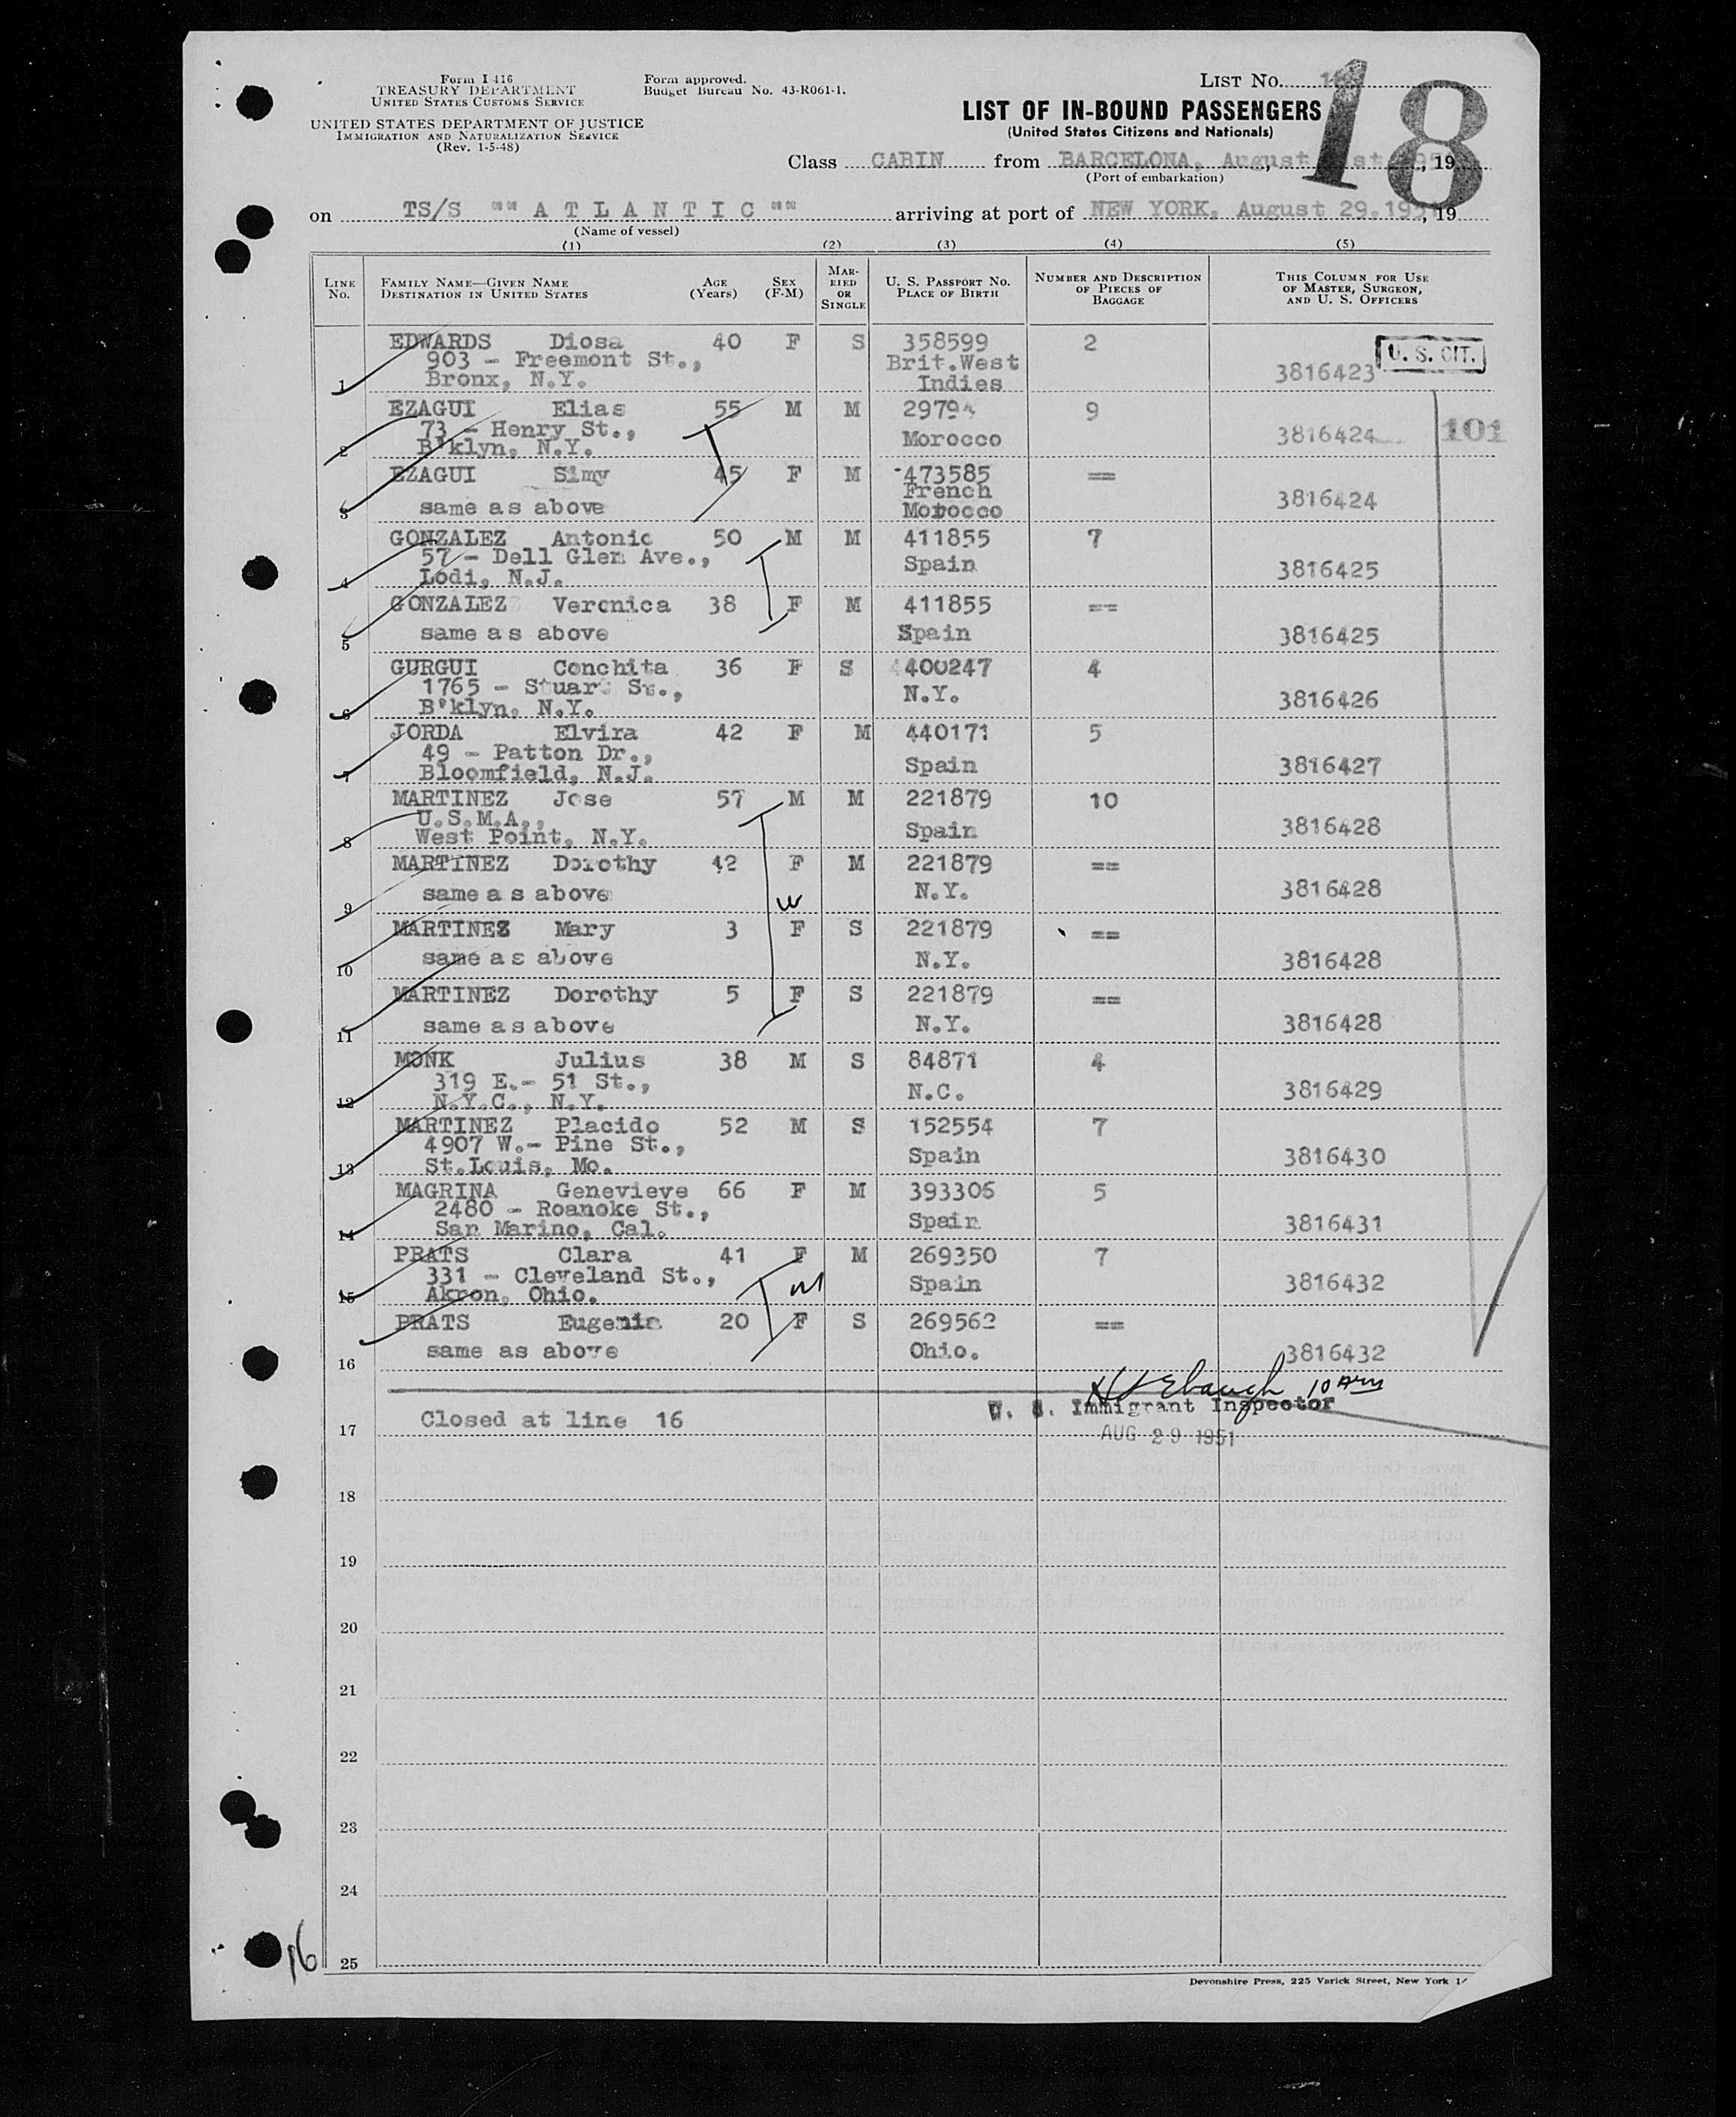 Form I 416
TREASURY DEPARTMENT
UNITED STATES CUSTOMS SERVICE
UNITED STATES DEPARTMENT OF JUSTICE
IMMIGRATION AND NATURALIZATION SERVICE
(Rev. 1-5-48)
Form approved.
Budget Bureau No. 43-R061-1.
LIST NO.
18
LIST OF IN-BOUND PASSENGERS
(United States Citizens and Nationals)
Class CABIN from BARCELONA, August , 19
(Port of embarkation)
on TS/S "" A T L A N T I C "" arriving at port of NEW YORK, August 29.195 , 19
(Name of vessel)
(1) (2) (3) (4) (5)
LINE No. FAMILY NAME—GIVEN NAME DESTINATION IN UNITED STATES AGE (Years) SEX (F-M) MARRIED OR SINGLE U. S. PASSPORT NO. PLACE OF BIRTH NUMBER AND DESCRIPTION OF PIECES OF BAGGAGE THIS COLUMN FOR USE OF MASTER, SURGEON, AND U. S. OFFICERS
EDWARDS Diosa 40 F S 358599 2 U. S. CIT.
903 - Freemont St., Brit.West
1 Bronx, N.Y. Indies 3816423
EZAGUI Elias 55 M M 9 101
73 - Henry St.,
2 B'klyn, N.Y. Morocco 3816424
EZAGUI Simy 45 F M 473585 ==
French
3 same as above Morocco 3816424
GONZALEZ Antonio 50 M M 411855 7
57 - Dell Glen Ave., Spain
4 Lodi, N.J. 3816425
GONZALEZ Veronica 38 F M 411855 ==
5 same as above Spain 3816425
GURGUI Conchita 36 F S 400247 4
1765 - Stuart St., N.Y.
6 B'klyn, N.Y. 3816426
JORDA Elvira 42 F M 440171 5
49 - Patton Dr.,
7 Bloomfield, N.J. Spain 3816427
MARTINEZ Jose 57 M M 221879 10
U.S.M.A.,
8 West Point, N.Y. Spain 3816428
MARTINEZ Dorothy 42 F M 221879 ==
9 same as above N.Y. 3816428
MARTINEZ Mary 3 F S 221879 ==
10 same as above N.Y. 3816428
MARTINEZ Dorothy 5 F S 221879 ==
11 same as above N.Y. 3816428
MONK Julius 38 M S 84871 4
319 E.- 51 St.,
12 N.Y.C., N.Y. N.C. 3816429
MARTINEZ Placido 52 M S 152554 7
4907 W.- Pine St.,
13 St.Louis, Mo. Spain 3816430
MAGRINA Genevieve 66 F M 393306 5
2480 - Roanoke St.,
14 San Marino, Cal. Spain 3816431
PRATS Clara 41 F M 269350 7
331 - Cleveland St.,
15 Akron, Ohio. Spain 3816432
PRATS Eugenia 20 F S 269562 ==
16 same as above Ohio. 3816432
10 Am
U. S. Immigrant Inspector
17 Closed at line 16
AUG 29 1951
18
19
20
21
22
23
24
25
16
Devonshire Press, 225 Varick Street, New York